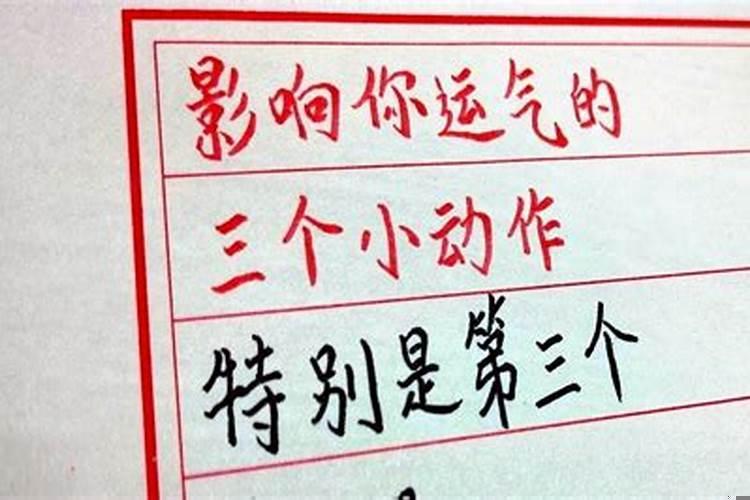 影响你运气的
三个小动作
特别是第三个